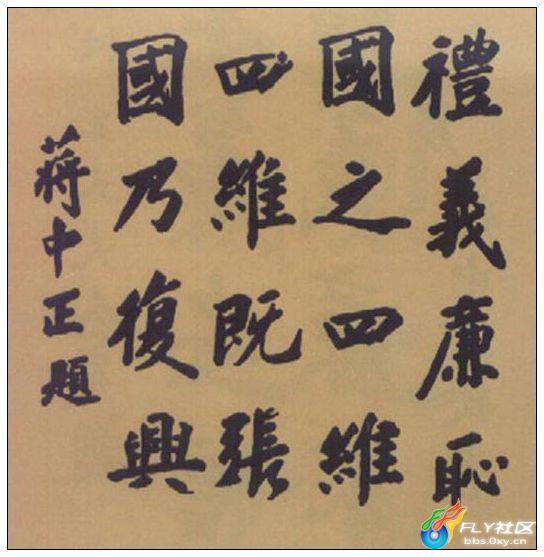 禮義廉恥
國之四維
四維既張
國乃復興
蔣中正題
FLY社区
bbs.0xy.cn